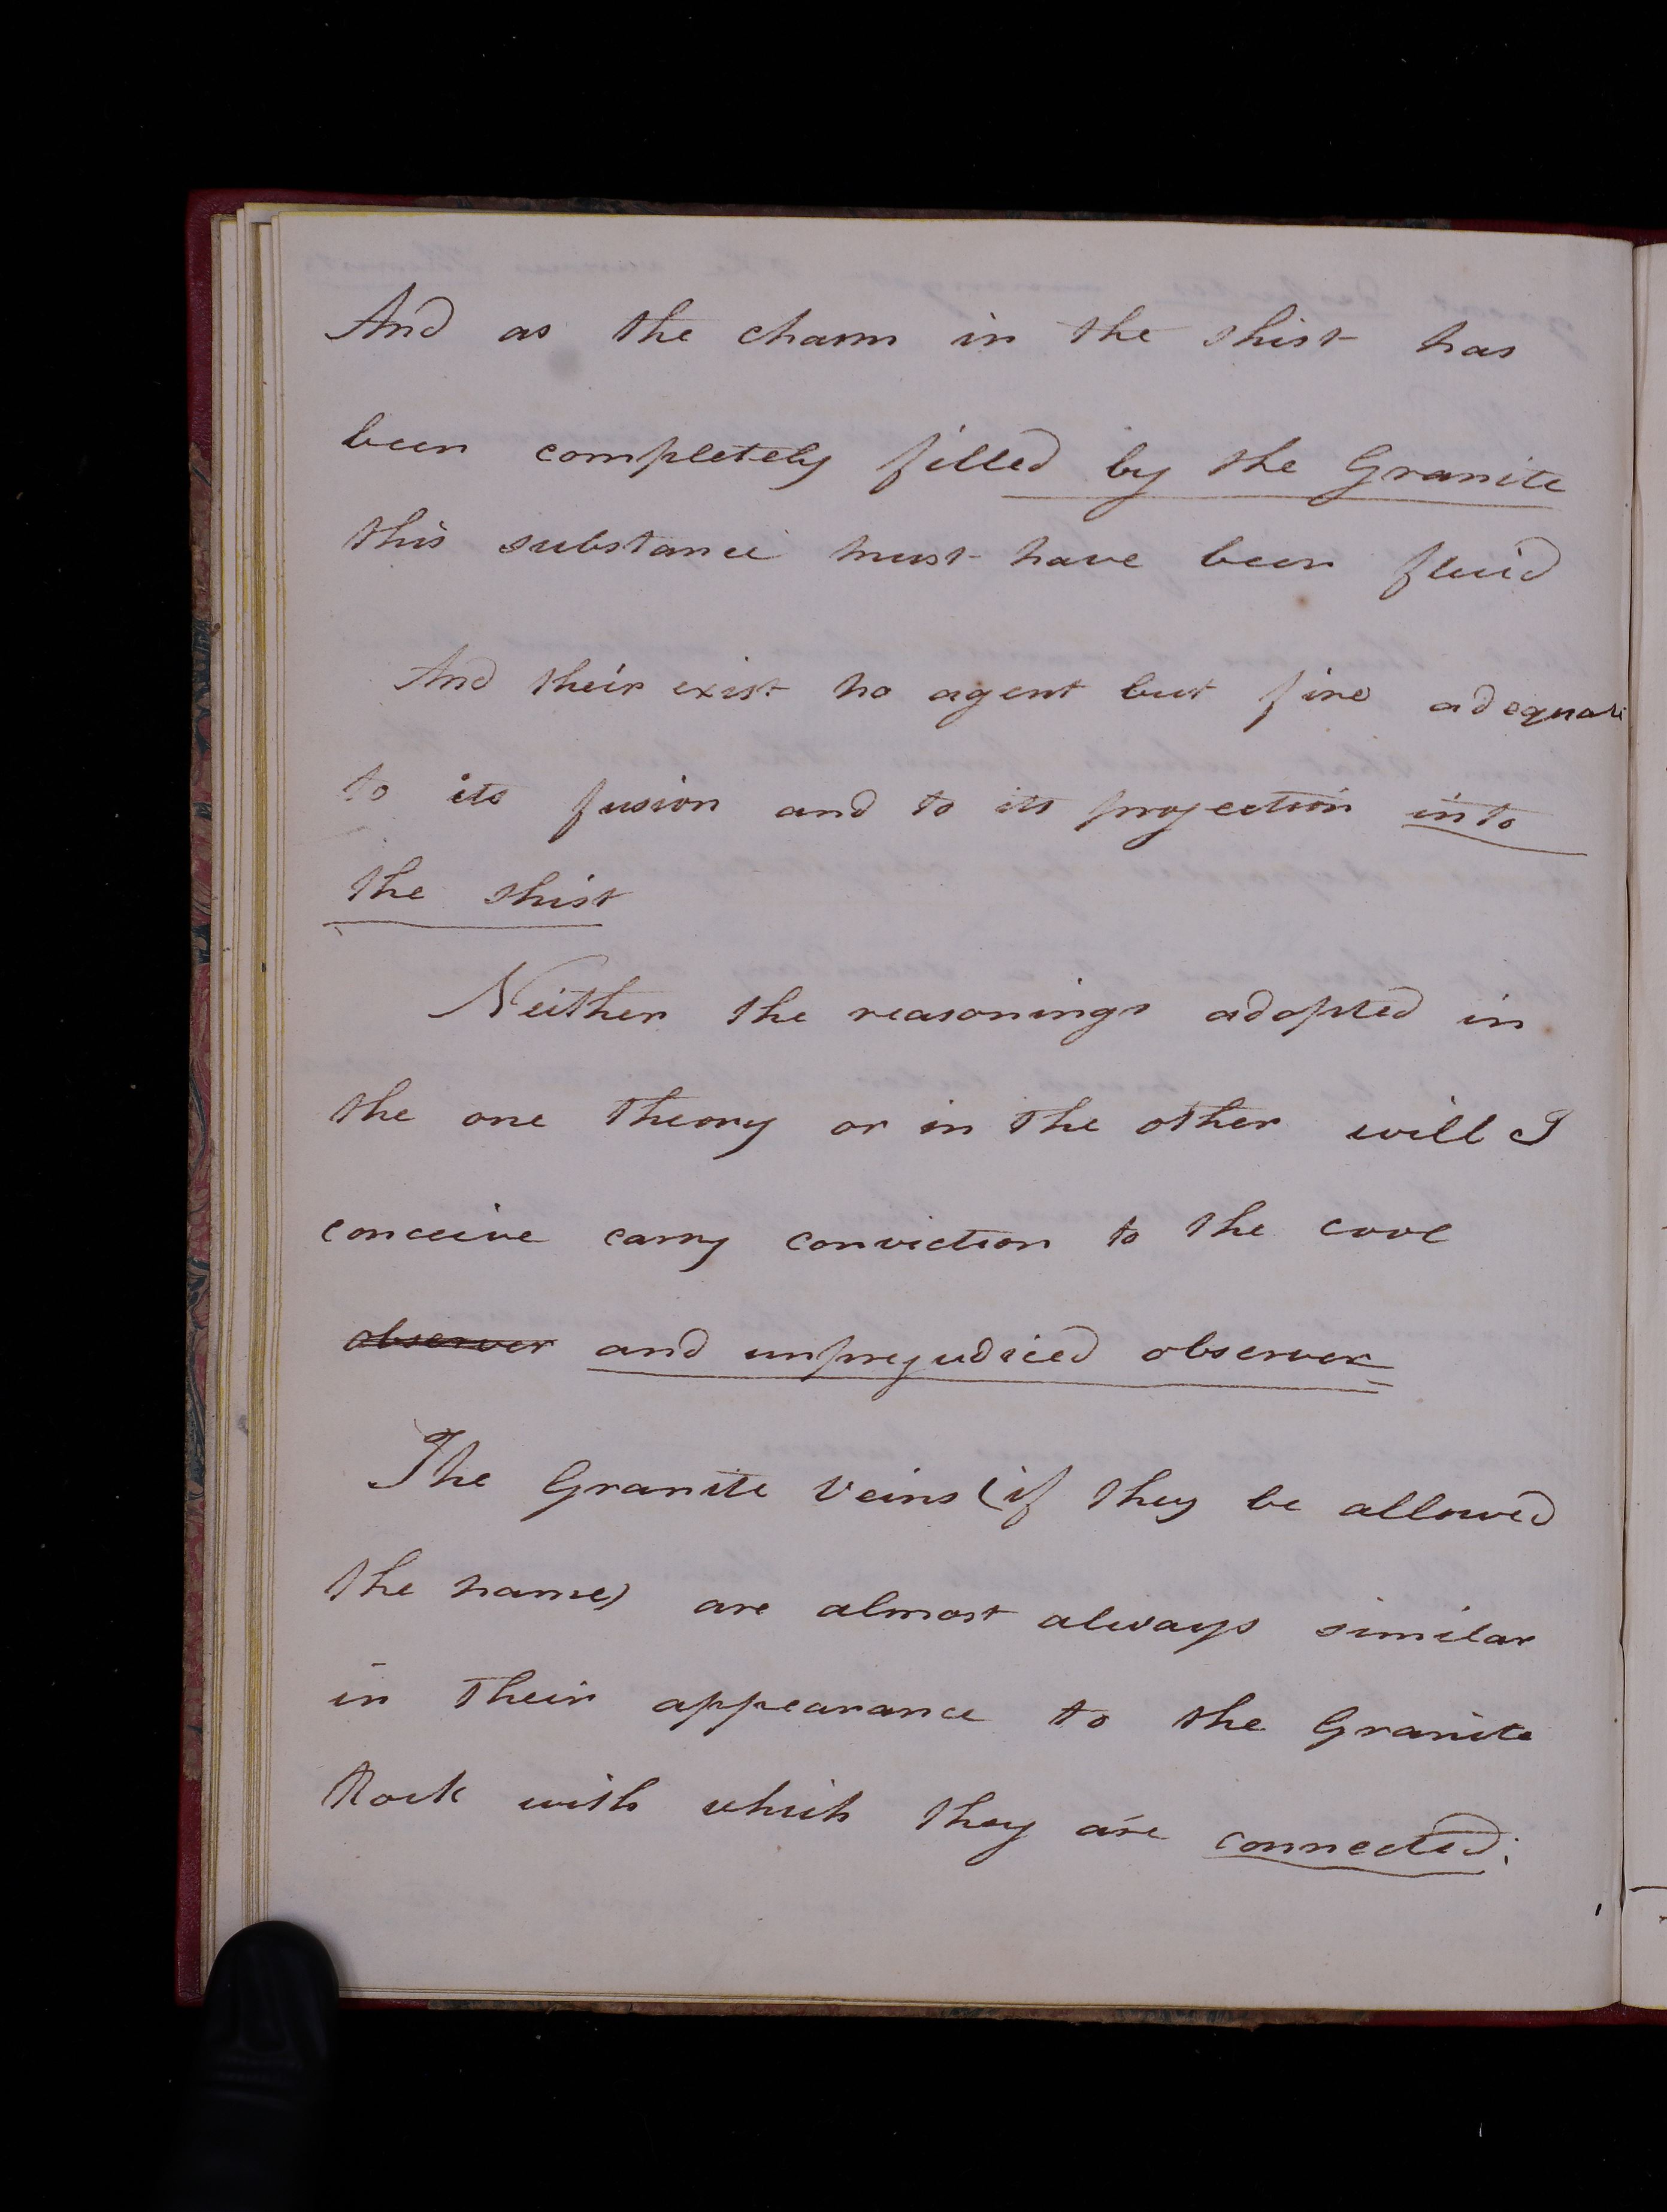 And as the chasm in the shist has
been completely filled by the Granite
this substance must have been fluid
And their exist no agent but fire adequate
to its fusion and to its projection into
the shist
Neither the reasonings adopted in
the one theory or in the other will I
conceive carry conviction to the cool
observer and unprejudiced observer
The Granite Veins (if they be allowed
the name) are almost always similar
in their appearance to the Granite
Rock with which they are connected;